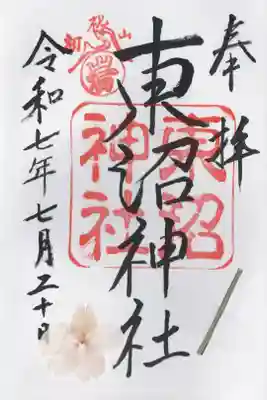 奉拝
東沼神社
東沼
神社
令和七年七月二十日